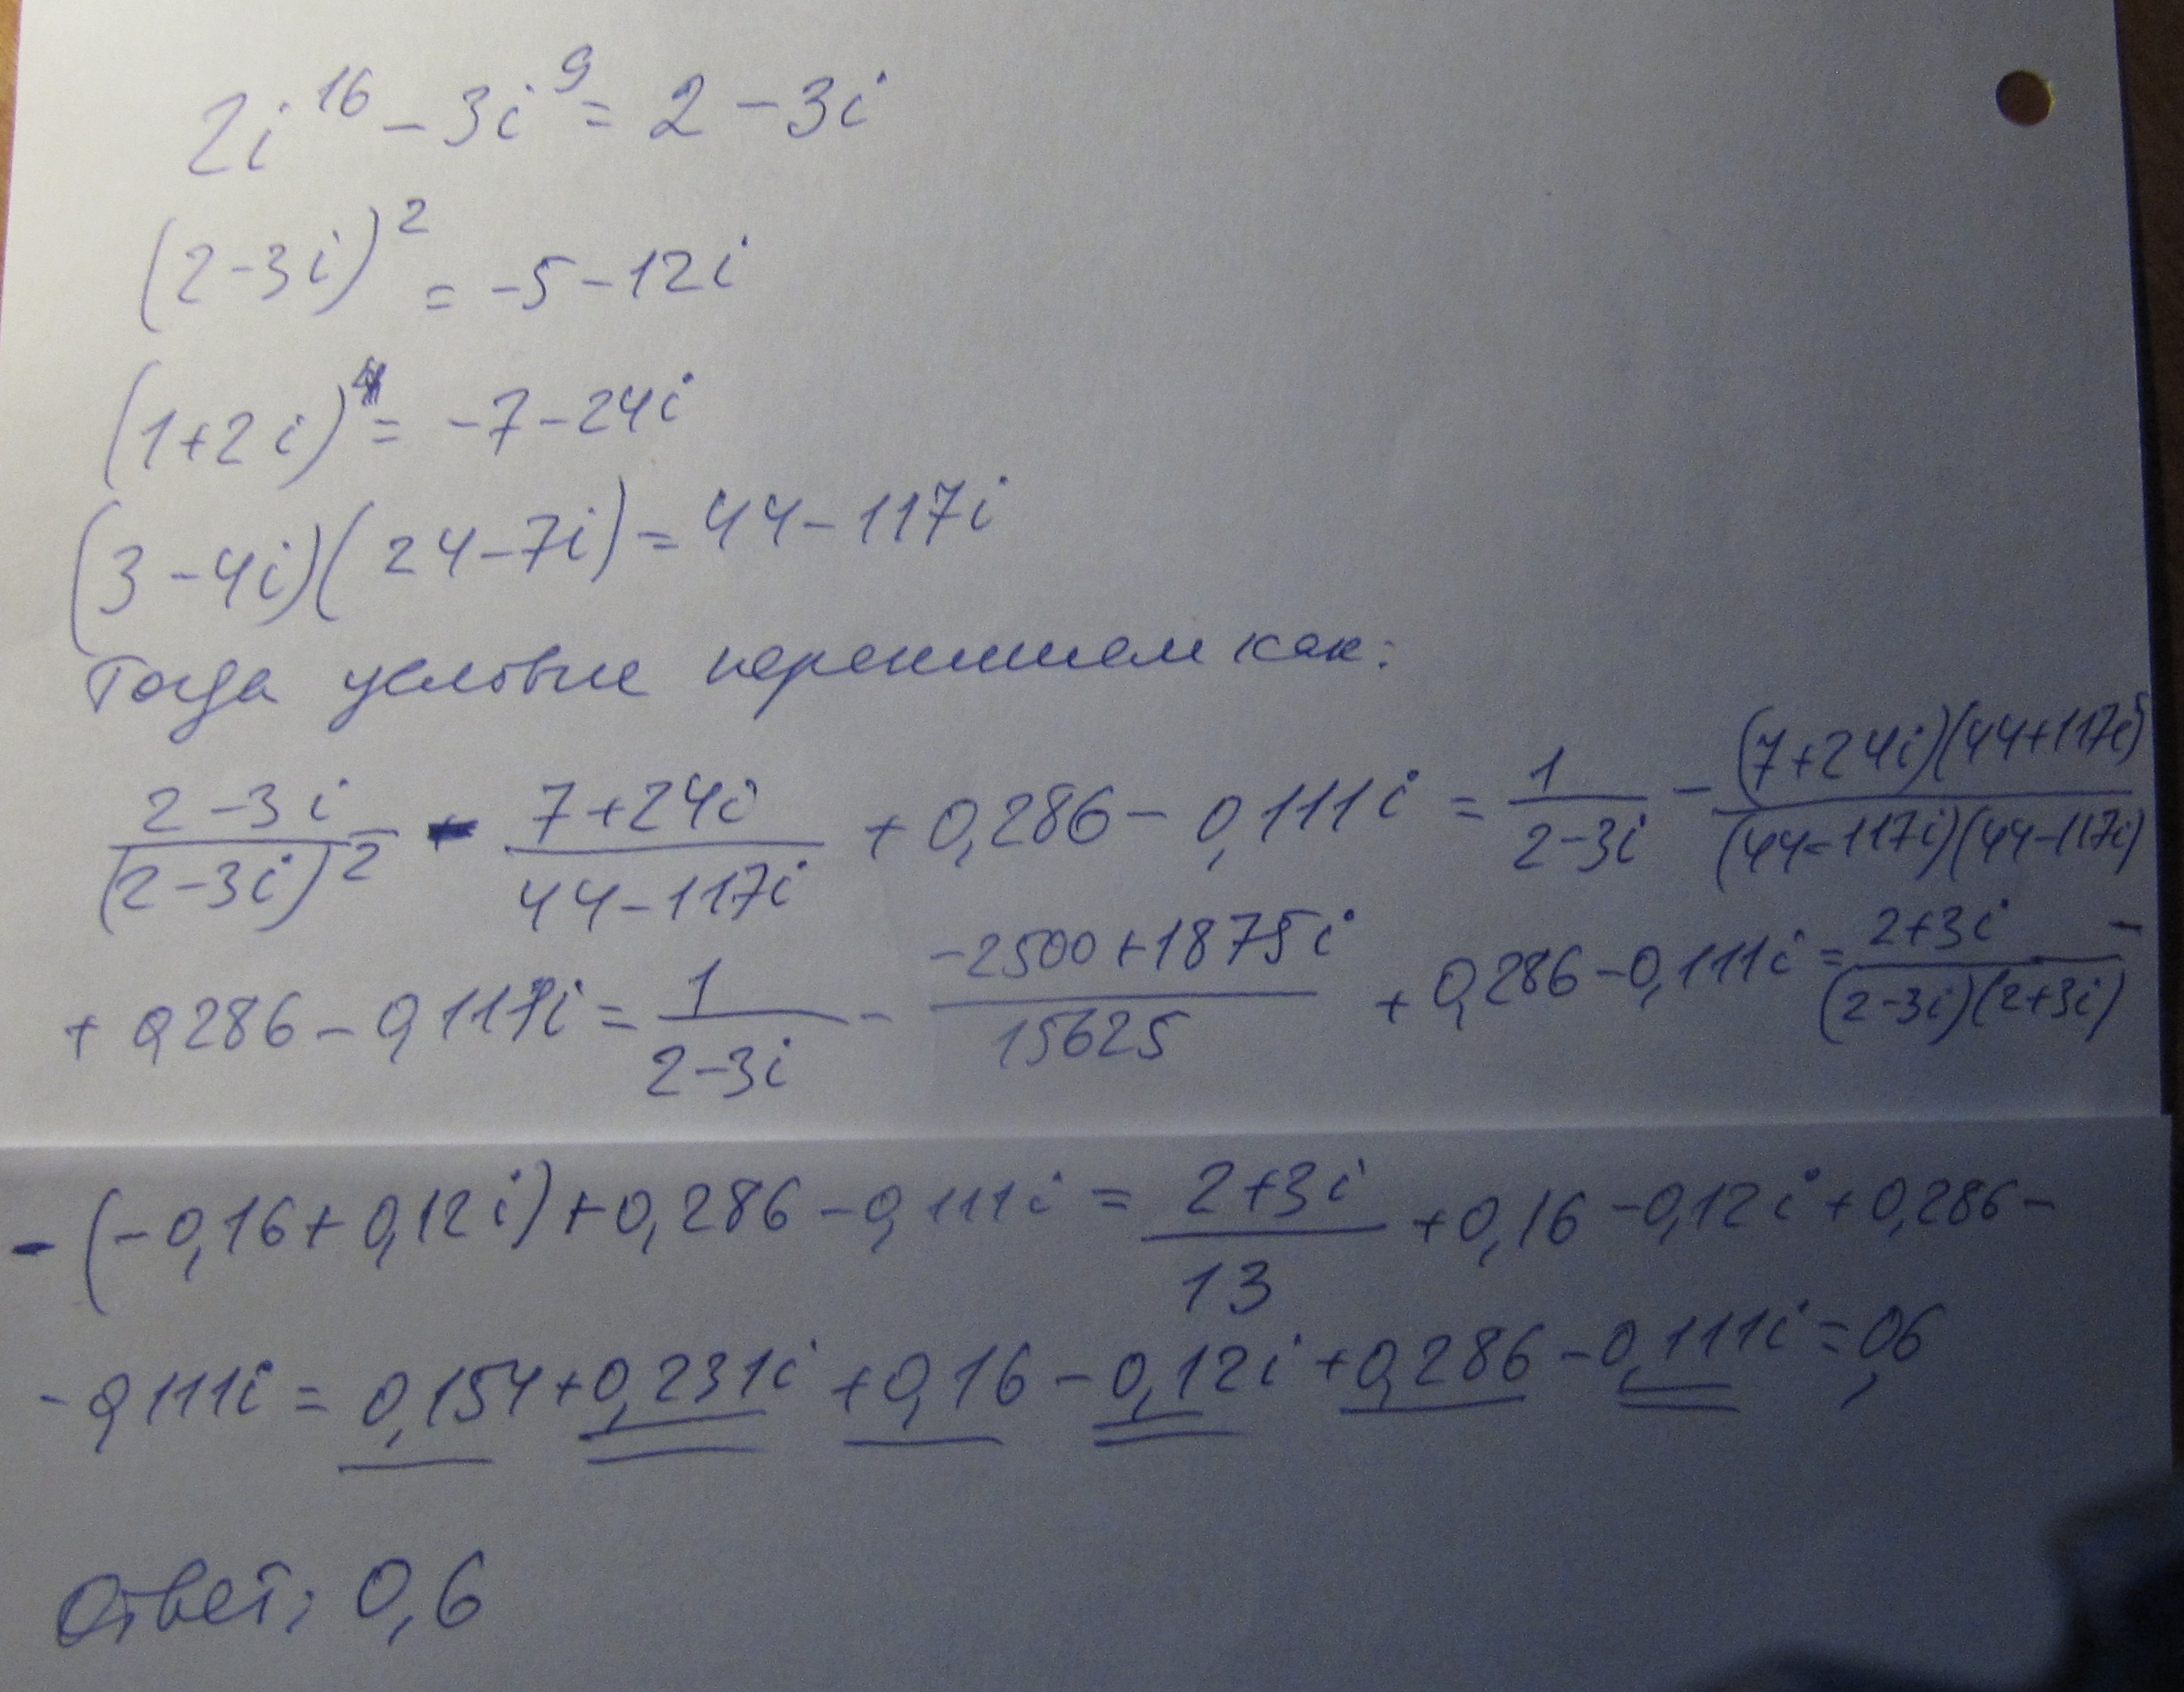 2i^16 - 3i^9 = 2 - 3i
(2-3i)^2 = -5-12i
(1+2i)^4 = -7-24i
(3-4i)(24-7i) = 44-117i
Тогда условие перепишем как:
(2-3i)/(2-3i)^2 - (7+24i)/(44-117i) + 0,286 - 0,111i = 1/(2-3i) - ((7+24i)(44+117i))/((44-117i)(44-117i))
+ 0,286 - 0,111i = 1/(2-3i) - (-2500+1875i)/15625 + 0,286 - 0,111i = (2+3i)/((2-3i)(2+3i)) -
- (-0,16+0,12i) + 0,286 - 0,111i = (2+3i)/13 + 0,16 - 0,12i + 0,286 -
- 0,111i = 0,154 + 0,231i + 0,16 - 0,12i + 0,286 - 0,111i = 0,6
Ответ: 0,6